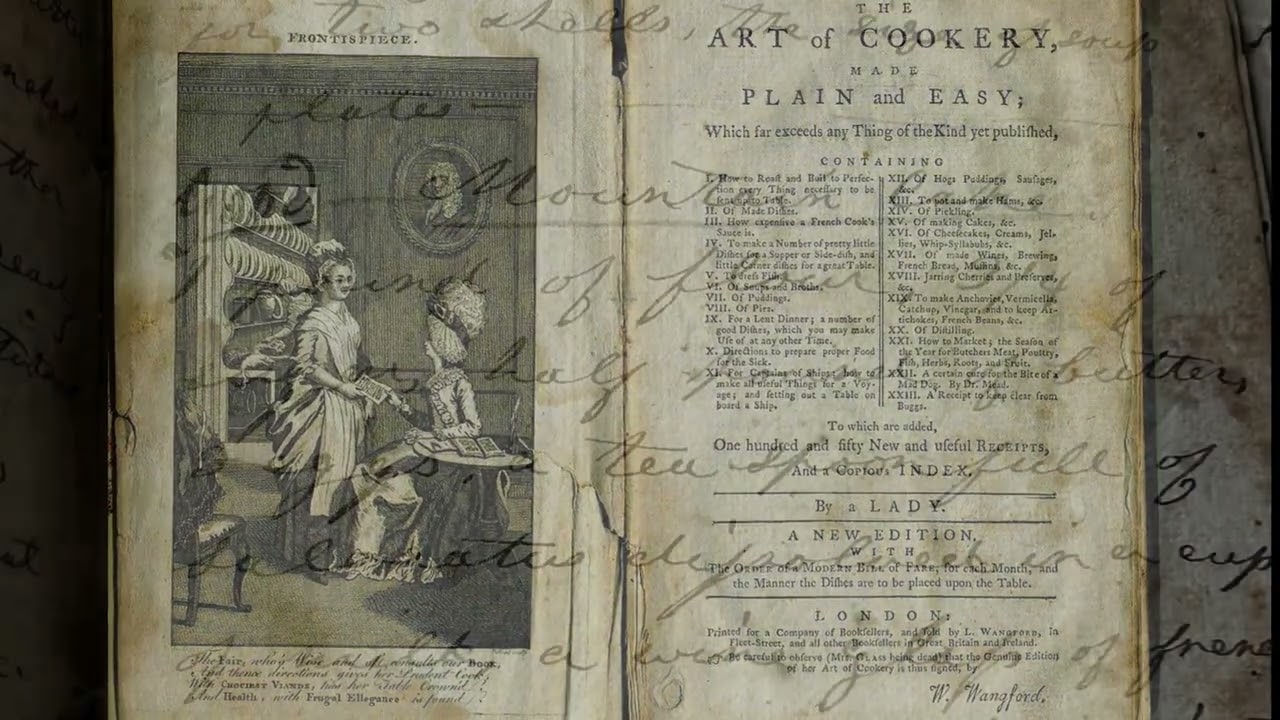 FRONTISPIECE.
The Fair, who's Wise and oft consults our BOOK,
And thence directions gives her Prudent Cook,
With CHOICEST VIANDS, has her Table Crown'd,
And Health, with Frugal Ellegance is found.
THE
ART of COOKERY,
MADE
PLAIN and EASY;
Which far exceeds any Thing of the Kind yet publiſhed,
CONTAINING
I. How to Roaſt and Boil to Perfec-
tion every Thing neceſſary to be
ſent up to Table.
II. Of Made Diſhes.
III. How expenſive a French Cook's
Sauce is.
IV. To make a Number of pretty little
Diſhes for a Supper or Side-diſh, and
little Corner diſhes for a great Table.
V. To dreſs Fiſh.
VI. Of Soups and Broths.
VII. Of Puddings.
VIII. Of Pies.
IX. For a Lent Dinner; a number of
good Diſhes, which you may make
Uſe of at any other Time.
X. Directions to prepare proper Food
for the Sick.
XI. For Captains of Ships; how to
make all uſeful Things for a Voy-
age; and ſetting out a Table on
board a Ship.
XII. Of Hogs Puddings, Sauſages,
&c.
XIII. To pot and make Hams, &c.
XIV. Of Pickling.
XV. Of making Cakes, &c.
XVI. Of Cheeſecakes, Creams, Jel-
lies, Whip-Syllabubs, &c.
XVII. Of made Wines, Brewing,
French Bread, Muffins, &c.
XVIII. Jarring Cherries and Preſerves,
&c.
XIX. To make Anchovies, Vermicella,
Catchup, Vinegar, and to keep Ar-
tichokes, French Beans, &c.
XX. Of Diſtilling.
XXI. How to Market; the Seaſon of
the Year for Butchers Meat, Poultry,
Fiſh, Herbs, Roots, and Fruit.
XXII. A certain cure for the Bite of a
Mad Dog. By Dr. Mead.
XXIII. A Receipt to keep clear from
Buggs.
To which are added,
One hundred and fifty New and uſeful RECEIPTS,
And a COPIOUS INDEX.
By a LADY.
A NEW EDITION,
WITH
The ORDER of a MODERN BILL of FARE, for each Month, and
the Manner the Diſhes are to be placed upon the Table.
LONDON:
Printed for a Company of Bookſellers, and ſold by L. WANGFORD, in
Fleet-Street, and all other Bookſellers in Great Britain and Ireland.
Be careful to obſerve (Mrs. GLASS being dead) that the Genuine Edition
of her Art of Cookery is thus ſigned, by
W. Wangford.
for two shells, the of soup
plates
Mountain
pound of flour six of
half butter
eggs, a tea spoon full of
salaratus disolved in a cup
a wine of